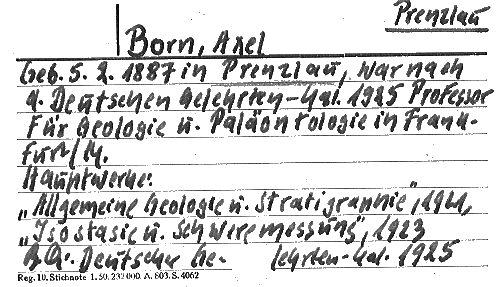 Prenzlau
Born, Axel
Geb. 5. 2. 1887 in Prenzlau, war nach
d. Deutschen Gelehrten-Kal. 1925 Professor
für Geologie u. Paläontologie in Frank-
furt/M.
Hauptwerke:
„Allgemeine Geologie u. Stratigraphie", 1921,
„Isostasie u. Schweremessung", 1923
Deutscher Ge- lehrten-Kal. 1925
Reg. 10. Stichnote 1. 50. 232000. A. 803. S. 4062